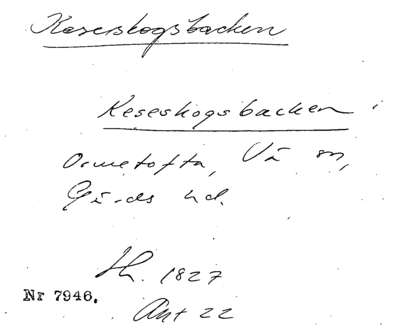 Keserskogsbacken
Keseskogsbacken i
Ormetofta, Vä sn,
Gärds hd.
Sk. 1827
Nr 7946.
Akt 22